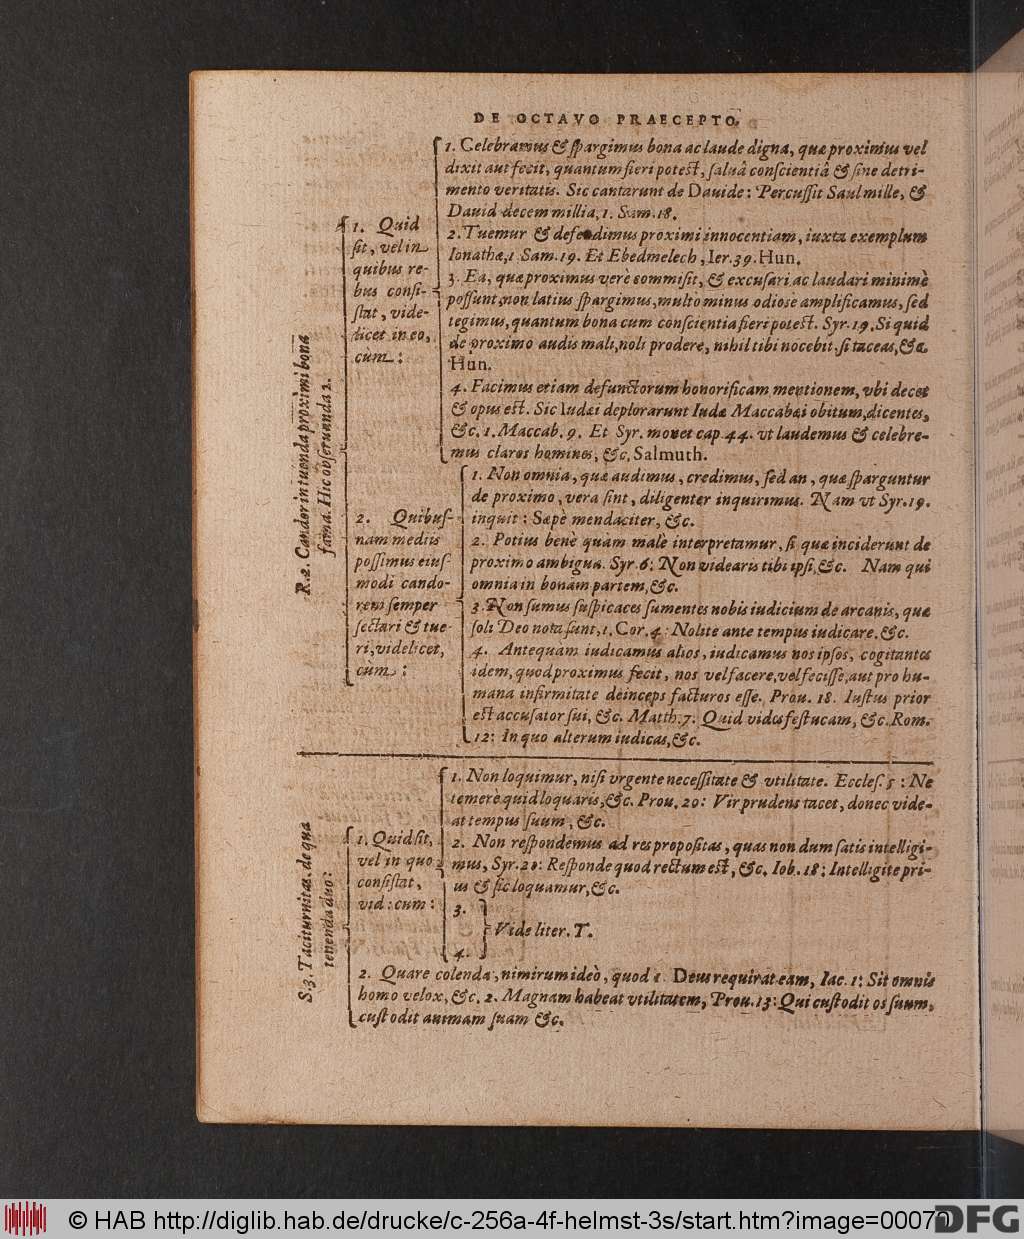 DE OCTAVO PRAECEPTO.
R. 2. Candor in tuenda proximi bona
fama. Hic observanda 2.
1. Quid
sit, vel in
quibus re-
bus consi-
stat, vide-
licet in eo,
cùm:
1. Celebramus & spargimus bona ac laude digna, quæ proximus vel
dixit aut fecit, quantum fieri potest, salvâ conscientiâ & sine detri-
mento veritatis. Sic cantarunt de Dauide: Percussit Saul mille, &
Dauid decem millia, 1. Sam. 18.
2. Tuemur & defendimus proximi innocentiam, iuxta exemplum
Ionathæ, 1 Sam. 19. Et Ebedmelech, Ier. 39. Hun.
3. Ea, quæ proximus verè commisit, & excusari ac laudari minimè
possunt, non latius spargimus, multò minus odiose amplificamus, sed
tegimus, quantum bona cum conscientia fieri potest. Syr. 19. Si quid
de proximo audis mali, noli prodere, nihil tibi nocebit, si taceas, &c.
Hun.
4. Facimus etiam defunctorum honorificam mentionem, vbi decet
& opus est. Sic Iudæi deplorarunt Iudæ Maccabæi obitum, dicentes,
&c. 1. Maccab. 9. Et Syr. monet cap. 44. vt laudemus & celebre-
mus claros homines, &c, Salmuth.
2. Quibus-
nam mediis
possimus eius-
modi cando-
rem semper
sectari & tue-
ri, videlicet,
cùm:
1. Non omnia, quæ audimus, credimus, sed an, quæ sparguntur
de proximo, vera sint, diligenter inquirimus. Nam vt Syr. 19.
inquit: Sæpè mendaciter, &c.
2. Potius benè quam malè interpretamur, si quæ inciderunt de
proximo ambigua. Syr. 6: Non videaris tibi ipsi, &c. Nam qui
omnia in bonam partem, &c.
3. Non sumus suspicaces sumentes nobis iudicium de arcanis, quæ
soli Deo nota sunt, 1. Cor. 4: Nolite ante tempus iudicare. &c.
4. Antequam iudicamus alios, iudicamus nos ipsos, cogitantes
idem, quod proximus fecit, nos vel facere, vel fecisse, aut pro hu-
mana infirmitate deinceps facturos esse. Prou. 18. Iustus prior
est accusator sui, &c. Matth. 7. Quid vides festucam, &c. Rom.
12: In quo alterum iudicas, &c.
S. 3. Taciturnitas, de qua
tenenda duo:
1. Quid sit,
vel in quo
consistat,
vid: cum:
1. Non loquimur, nisi vrgente necessitate & vtilitate. Eccles. 5: Ne
temerè quid loquaris, &c. Prou. 20: Vir prudens tacet, donec vide-
at tempus suum, &c.
2. Non respondemus ad res propositas, quas non dum satis intelligi-
mus, Syr. 20: Responde quod rectum est, &c. Iob. 18: Intelligite pri-
us & sic loquamur, &c.
3.
Vide liter. T.
4.
2. Quare colenda, nimirum ideò, quod 1. Deus requirat eam, Iac. 1: Sit omnis
homo velox, &c, 2. Magnam habeat vtilitatem, Prou. 13: Qui custodit os suum,
custodit animam suam &c.
© HAB http://diglib.hab.de/drucke/c-256a-4f-helmst-3s/start.htm?image=00070
DFG